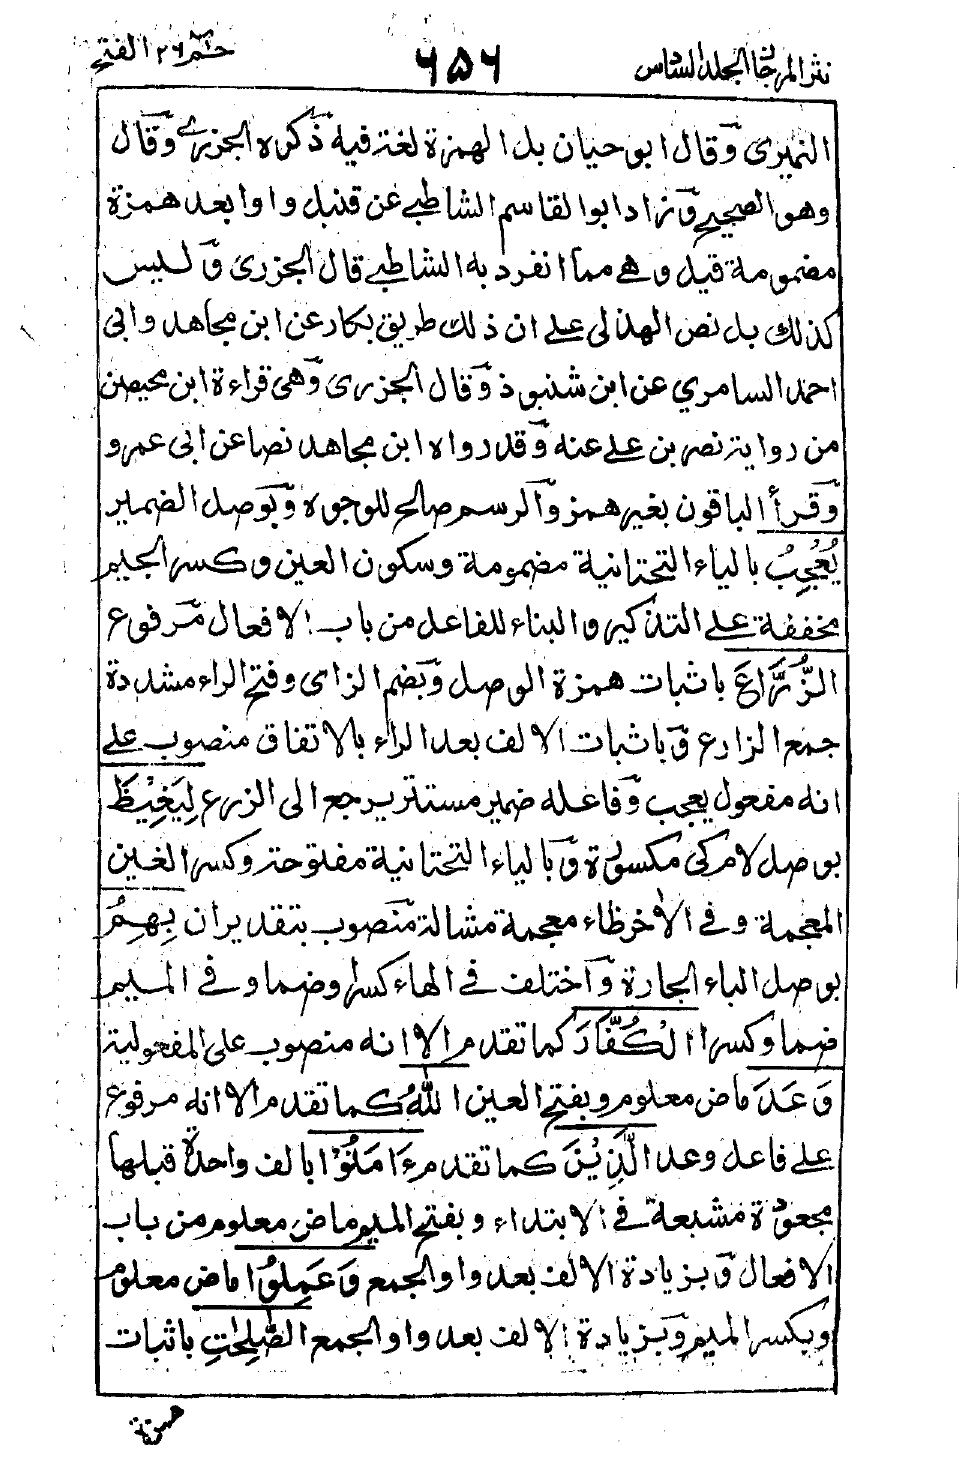 نثر المرجان المجلد السادس ٦٥٦ حم ٢٦ الفتح
النميرى وقال ابو حيان بل الهمزة لغة فيه ذكره الجزرے وقال
وهو الصحيح وزاد ابو القاسم الشاطبے عن قنبل واوا بعد همزة
مضمومة قيل وهے مما انفرد به الشاطبے قال الجزرى وليس
كذلك بل نص الهذلى علے ان ذلك طريق بكار عن ابن مجاهد وابى
احمد السامري عن ابن شنبوذ وقال الجزرى وهى قراءة ابن محيصن
من رواية نصر بن علے عنه وقد رواه ابن مجاهد نصا عن ابى عمرو
وقرأ الباقون بغير همز والرسم صالح للوجوه وبوصل الضمير
يُعْجِبُ بالياء التحتانية مضمومة وسكون العين وكسر الجيم
مخففة علے التذكير والبناء للفاعل من باب الافعال مرفوع
الزُّرَّاعَ باثبات همزة الوصل وبضم الزاى وفتح الراء مشددة
جمع الزارع وباثبات الالف بعد الراء بالاتفاق منصوب علے
انه مفعول يعجب وفاعله ضمير مستتر يرجع الى الزرع لِيَغِيْظَ
بوصل لام كى مكسورة وبالياء التحتانية مفتوحة وكسر الغين
المعجمة وفے الاٰخر ظاء معجمة مشالة منصوب بتقدير ان بِهِمُ
بوصل الباء الجارة واختلف فے الهاء كسرا وضما وفے الميم
ضما وكسرا الْكُفَّارَ كما تقدم الا انه منصوب على المفعولية
وَعَدَ ماض معلوم وبفتح العين اللّٰهُ كما تقدم الا انه مرفوع
علے فاعل وعد الَّذِيْنَ كما تقدم ءَامَنُوْا بالف واحدة قبلها
مجعودة مشبعة فے الابتداء وبفتح الميم ماض معلوم من باب
الافعال وبزيادة الالف بعد واو الجمع وَعَمِلُوا ماض معلوم
وبكسر الميم وبزيادة الالف بعد واو الجمع الصّٰلِحٰتِ باثبات
همزة